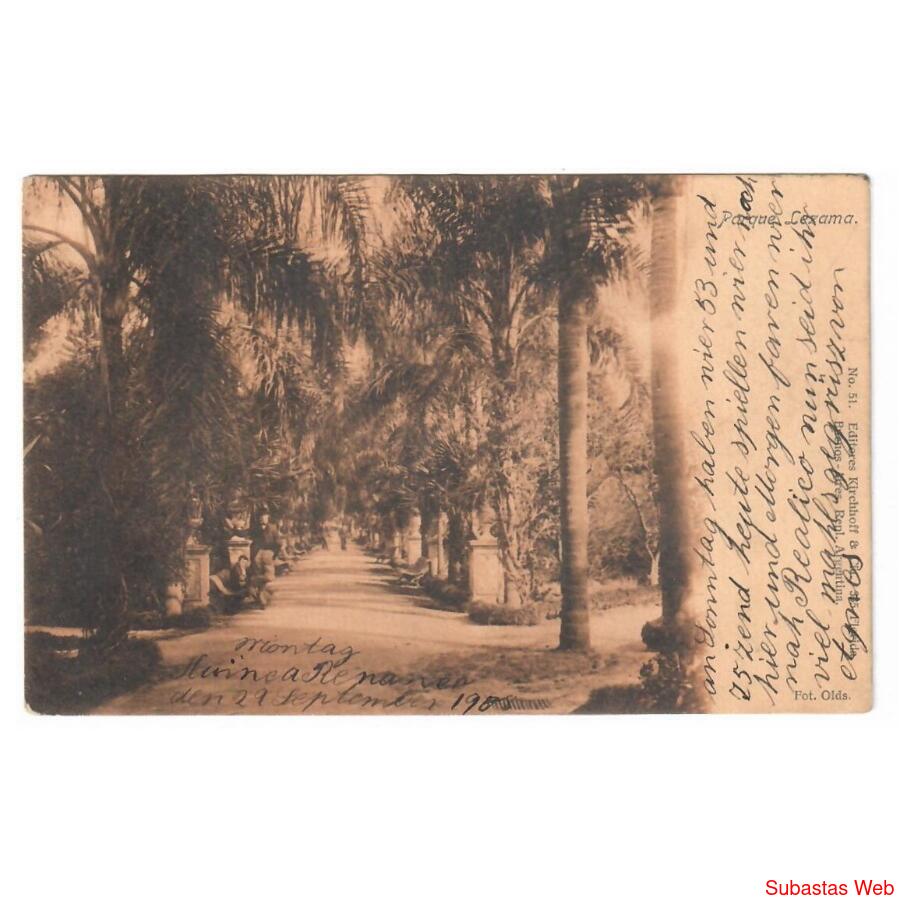 Parque Lezama.
an Sonntag haben wier 53 und
75 zend heute spiellen wier noch
hier und Morgen faren wier
nah Realico nun seid ihr
viel mahls gegrüszvon
No. 51. Editores Kirchhoff & Co.
Buenos-Aires Rep. Argentina.
Fot. Olds.
Montag
Huinca Renanco
den 29 September 190
Subastas Web